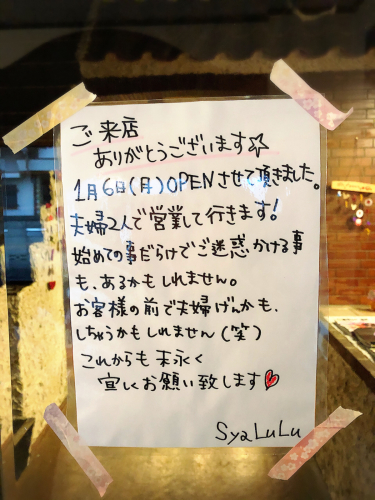 ご来店
ありがとうございます☆
1月6日(月)OPENさせて頂きました。
夫婦2人で営業して行きます!
始めての事だらけでご迷惑かける事
も、あるかもしれません。
お客様の前で夫婦げんかも、
しちゃうかもしれません(笑)
これからも末永く
宜しくお願い致します♥
SyaLuLu